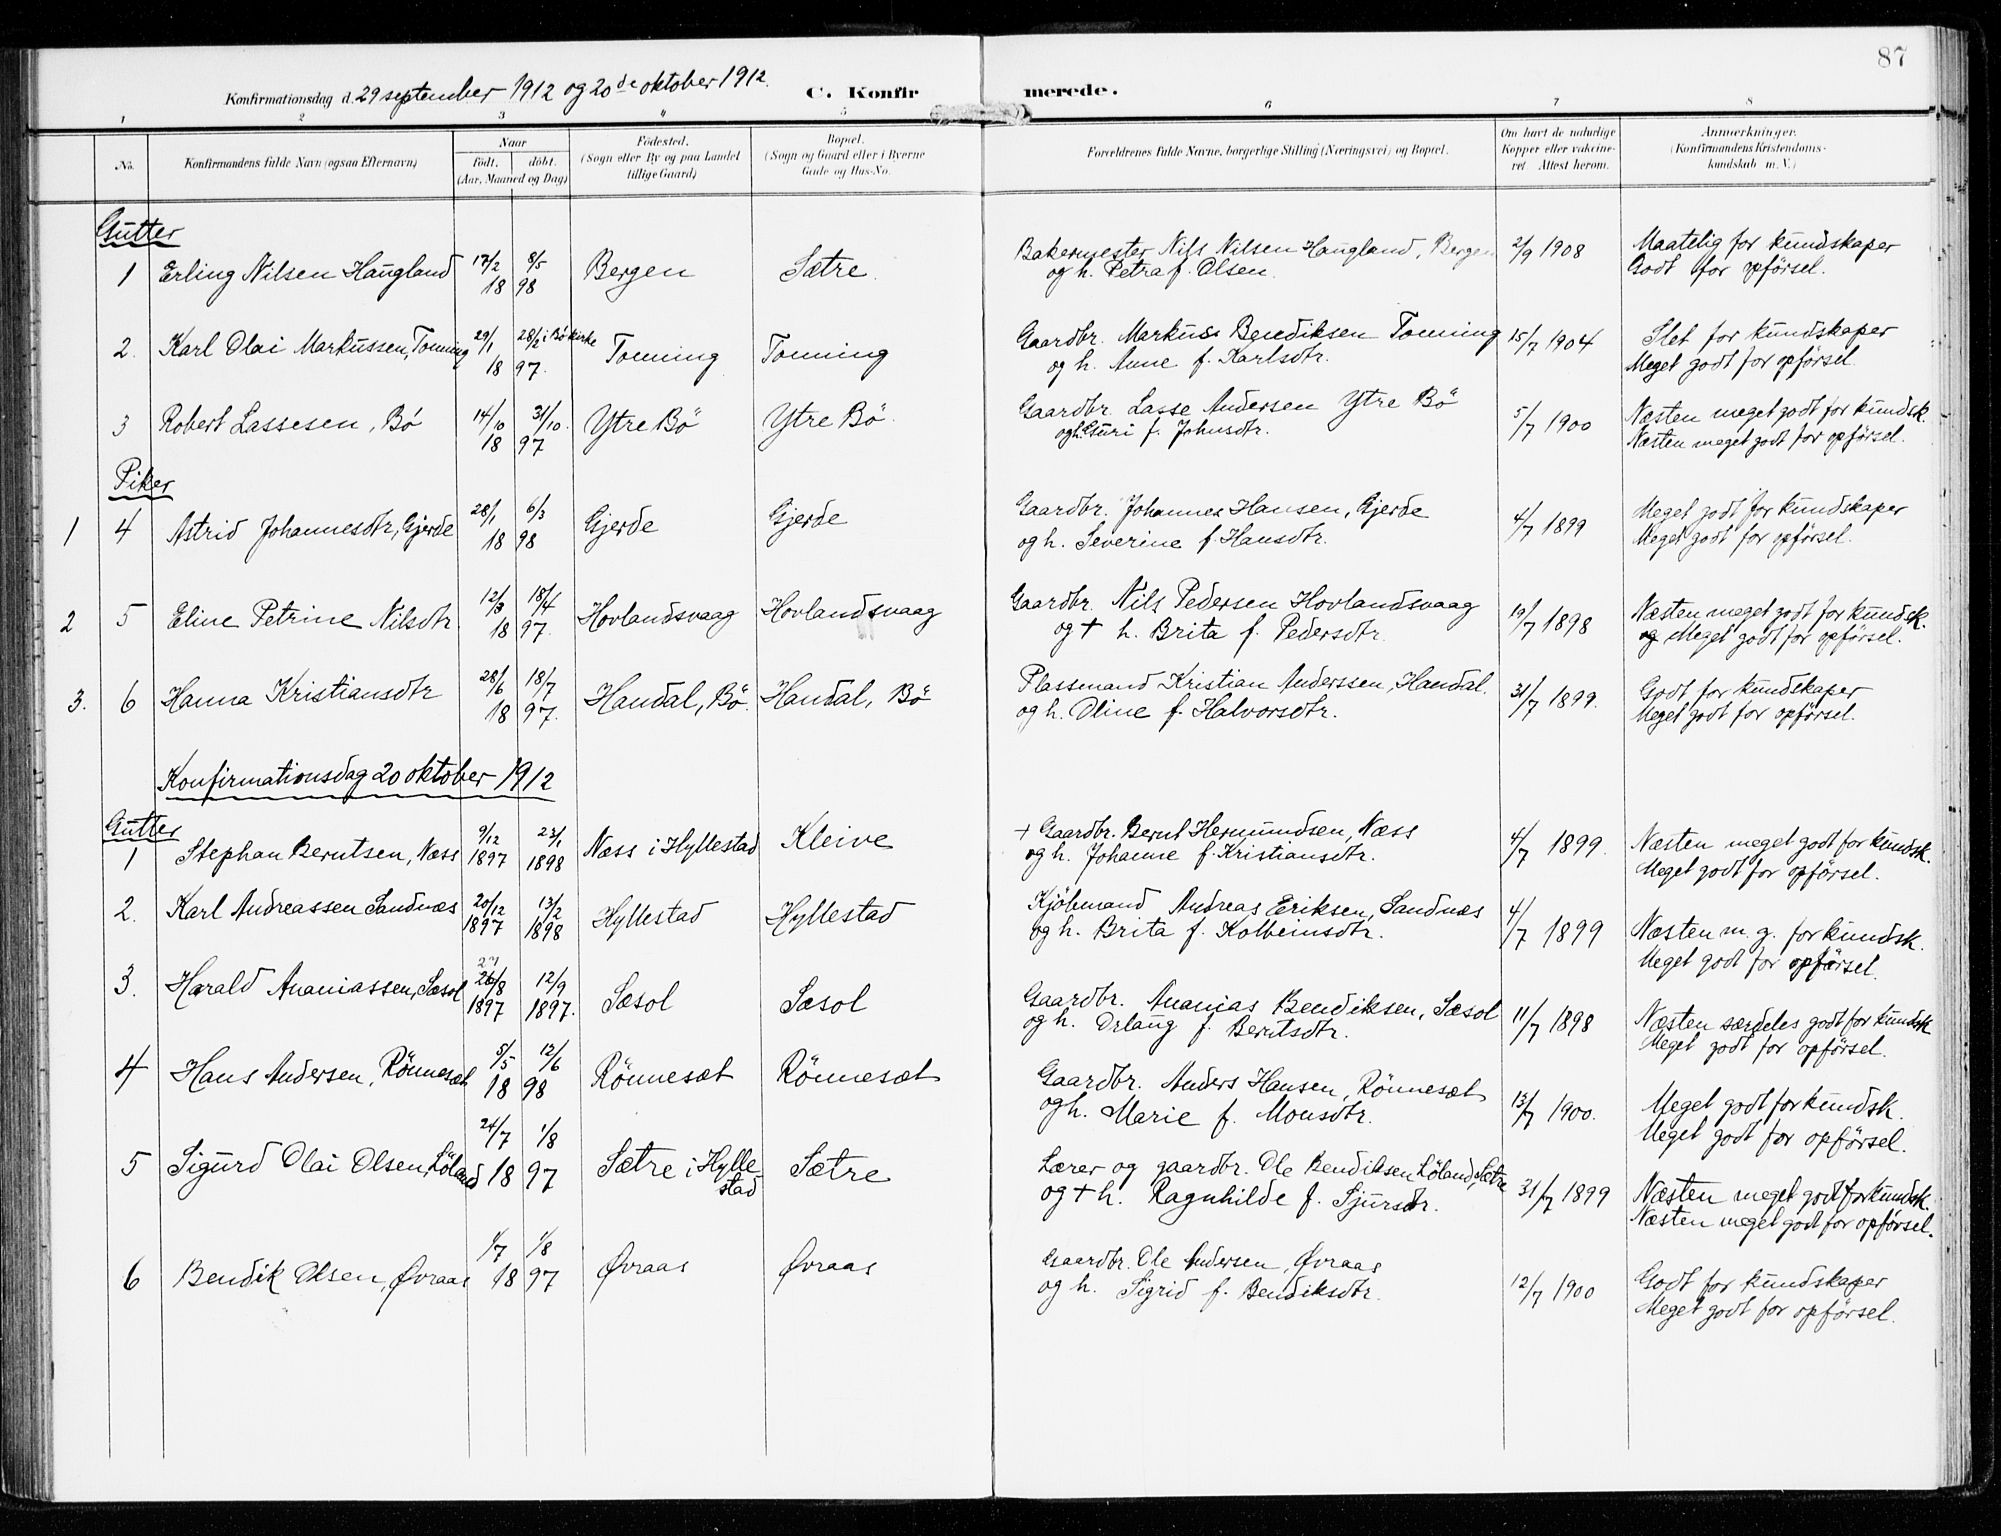 87
Konfirmationsdag d. 29 september 1912 og 20de oktober 1912. C. Konfirmerede.
1 2 3 4 5 6 7 8
No. Konfirmandens fulde Navn (ogsaa Efternavn) Naar født. døbt. (Aar, Maaned og Dag) Fødested. (Sogn eller By og paa Landet tillige Gaard) Bopæl. (Sogn og Gaard eller i Byerne Gade og Hus-No. Forældrenes fulde Navne, borgerlige Stilling (Næringsvei) og Bopæl. Om havt de naturlige Kopper eller vakcineret Attest herom. Anmærkninger. (Konfirmandens Kristendomskundskab m. V.)
Gutter
1 Erling Nilsen Haugland 17/2 8/5 Bergen Sætre Bakermester Nils Nilsen Haugland, Bergen 2/9 1908 Maatelig for kundskaper
18 98 og h. Petra f. Olsen. Godt for opförsel.
2. Karl Olai Markussen, Tonning 29/1 28/2 i Bö kirke Tonning Tonning Gaardbr. Markus Bendiksen Tonning 15/7 1904 Slet for kundskaper
18 97. og h. Anne f. Karlsdtr. Meget godt for opförsel.
3 Robert Lassesen, Bö 14/10 31/10. Ytre Bö Ytre Bö Gaardbr. Lasse Andersen Ytre Bö 5/7 1900 Næsten meget godt for kundsk.
18 97 og h. Guri f. Johnsdtr. Næsten meget godt for opförsel.
Piker
1 4 Astrid Johannesdtr, Gjerde 28/1 6/3 Gjerde Gjerde Gaardbr. Johannes Hansen, Gjerde 4/7 1899 Meget godt for kundskaper
18 98 og h. Severine f. Hansdtr. Meget godt for opförsel.
2 5 Eline Petrine Nilsdtr 12/3 18/4 Hovlandsvaag Hovlandsvaag Gaardbr. Nils Pedersen Hovlandsvaag 19/7 1898 Næsten meget godt for kundsk.
18 97. og + h. Brita f. Pedersdtr. og Meget godt for opførsel.
3. 6 Hanna Kristiansdtr 28/6 18/7 Handal, Bö. Handal, Bö Plassmand Kristian Anderssen, Handal. 31/7 1899. Godt for kundskaper
18 97. og h. Oline f. Halvorsdtr. Meget godt for opförsel.
Konfirmationsdag 20 oktober 1912
Gutter
1 Stephan Berntsen, Næss 9/12 23/1 Næss i Hyllestad Kleive + Gaardbr. Bernt Hermundsen, Næss 4/7 1899. Næsten meget godt for kundsk.
1897 1898 og h. Johanne f. Kristiansdtr. Meget godt for opförsel.
2. Karl Andreassen Sandnæs 20/12 13/2 Hyllestad Hyllestad Kjöbmand Andreas Eriksen, Sandnæs 4/7 1899 Næsten m. g. for kundsk.
1897 1898 og h. Brita f. Kolbeinsdtr. Meget godt for opførsel.
3. Harald Ananiassen, Sæsol 26/8 12/9 Sæsol Sæsol Gaardbr. Ananias Bendiksen, Sæsol 11/7 1898 Næsten særdeles godt for kundsk
1897 1897. og h. Orlaug f. Berntsdtr. Meget godt for opförsel.
4 Hans Andersen, Rönnesæt 5/5 12/6 Rönnesæt Rönnesæt Gaardbr. Anders Hansen, Rönnesæt 13/7 1900. Meget godt for kundsk.
18 98 og h. Marie f. Monsdtr. Meget godt for opförsel.
5 Sigurd Olai Olsen, Löland 24/7 1/8 Sætre i Hyllestad Sætre Lærer og gaardbr. Ole Bendiksen Löland, Sætre 31/7 1899 Næsten meget godt for kundsk.
18 97 og + h. Ragnhilde f. Sjursdtr. Næsten meget godt for opförsel.
6 Bendik Olsen, Øvraas 1/7 1/8 Øvraas Øvraas Gaardbr. Ole Andersen, Øvraas 12/7 1900 Godt for kundskaper
18 97 og h. Sigrid f. Bendiksdtr. Meget godt for opförsel.